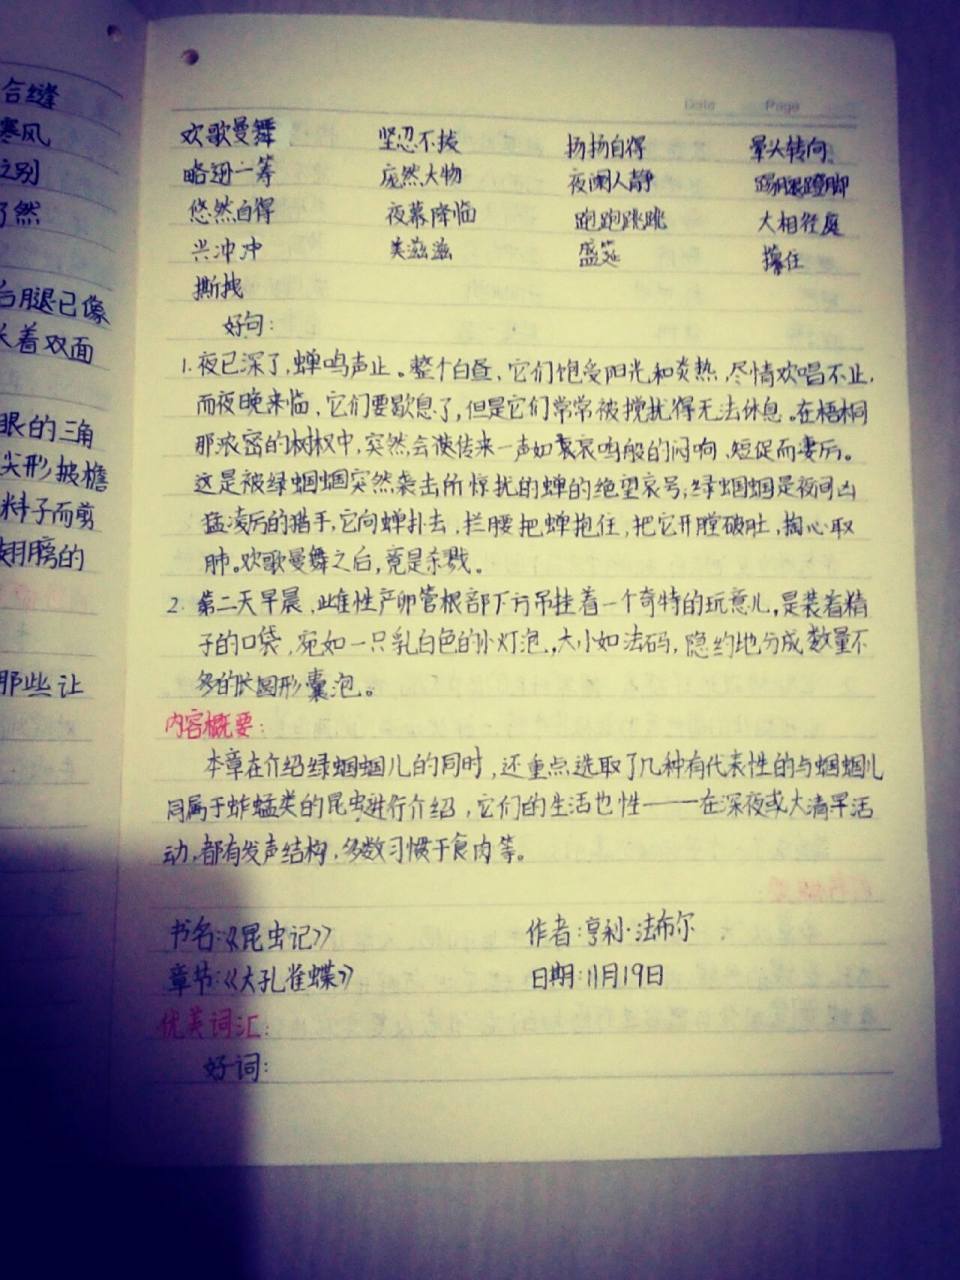 合缝
寒风
之别
了然
后腿已像
长着双面
眼的三角
尖形披檐
料子而剪
翅膀的
那些让
Date Page
欢歌曼舞 坚忍不拔 扬扬自得 晕头转向
略逊一筹 庞然大物 夜阑人静 踢腿蹬脚
悠然自得 夜幕降临 跑跑跳跳 大相径庭
兴冲冲 美滋滋 盛筵 攥住
撕拽
好句：
1. 夜已深了，蝉鸣声止。整个白昼，它们饱受阳光和炎热，尽情欢唱不止，
而夜晚来临，它们要歇息了，但是它们常常被搅扰得无法休息。在梧桐
那浓密的树杈中，突然会传来一声如哀鸣般的闷响，短促而凄厉。
这是被绿蝈蝈突然袭击所惊扰的蝉的绝望哀号；绿蝈蝈是夜间凶
猛凌厉的猎手，它向蝉扑去，拦腰把蝉抱住，把它开膛破肚，掏心取
肺。欢歌曼舞之后，竟是杀戮。
2. 第二天早晨，雌性产卵管根部下方吊挂着一个奇特的玩意儿，是装着精
子的口袋，宛如一只乳白色的小灯泡，大小如法码，隐约地分成数量不
多的长圆形囊泡。
内容概要：
本章在介绍绿蝈蝈儿的同时，还重点选取了几种有代表性的与蝈蝈儿
同属于蚱蜢类的昆虫进行介绍，它们的生活也性——在深夜或大清早活
动，都有发声结构，多数习惯于食肉等。
书名：《昆虫记》 作者：亨利·法布尔
章节：《大孔雀蝶》 日期：11月19日
优美词汇：
好词：